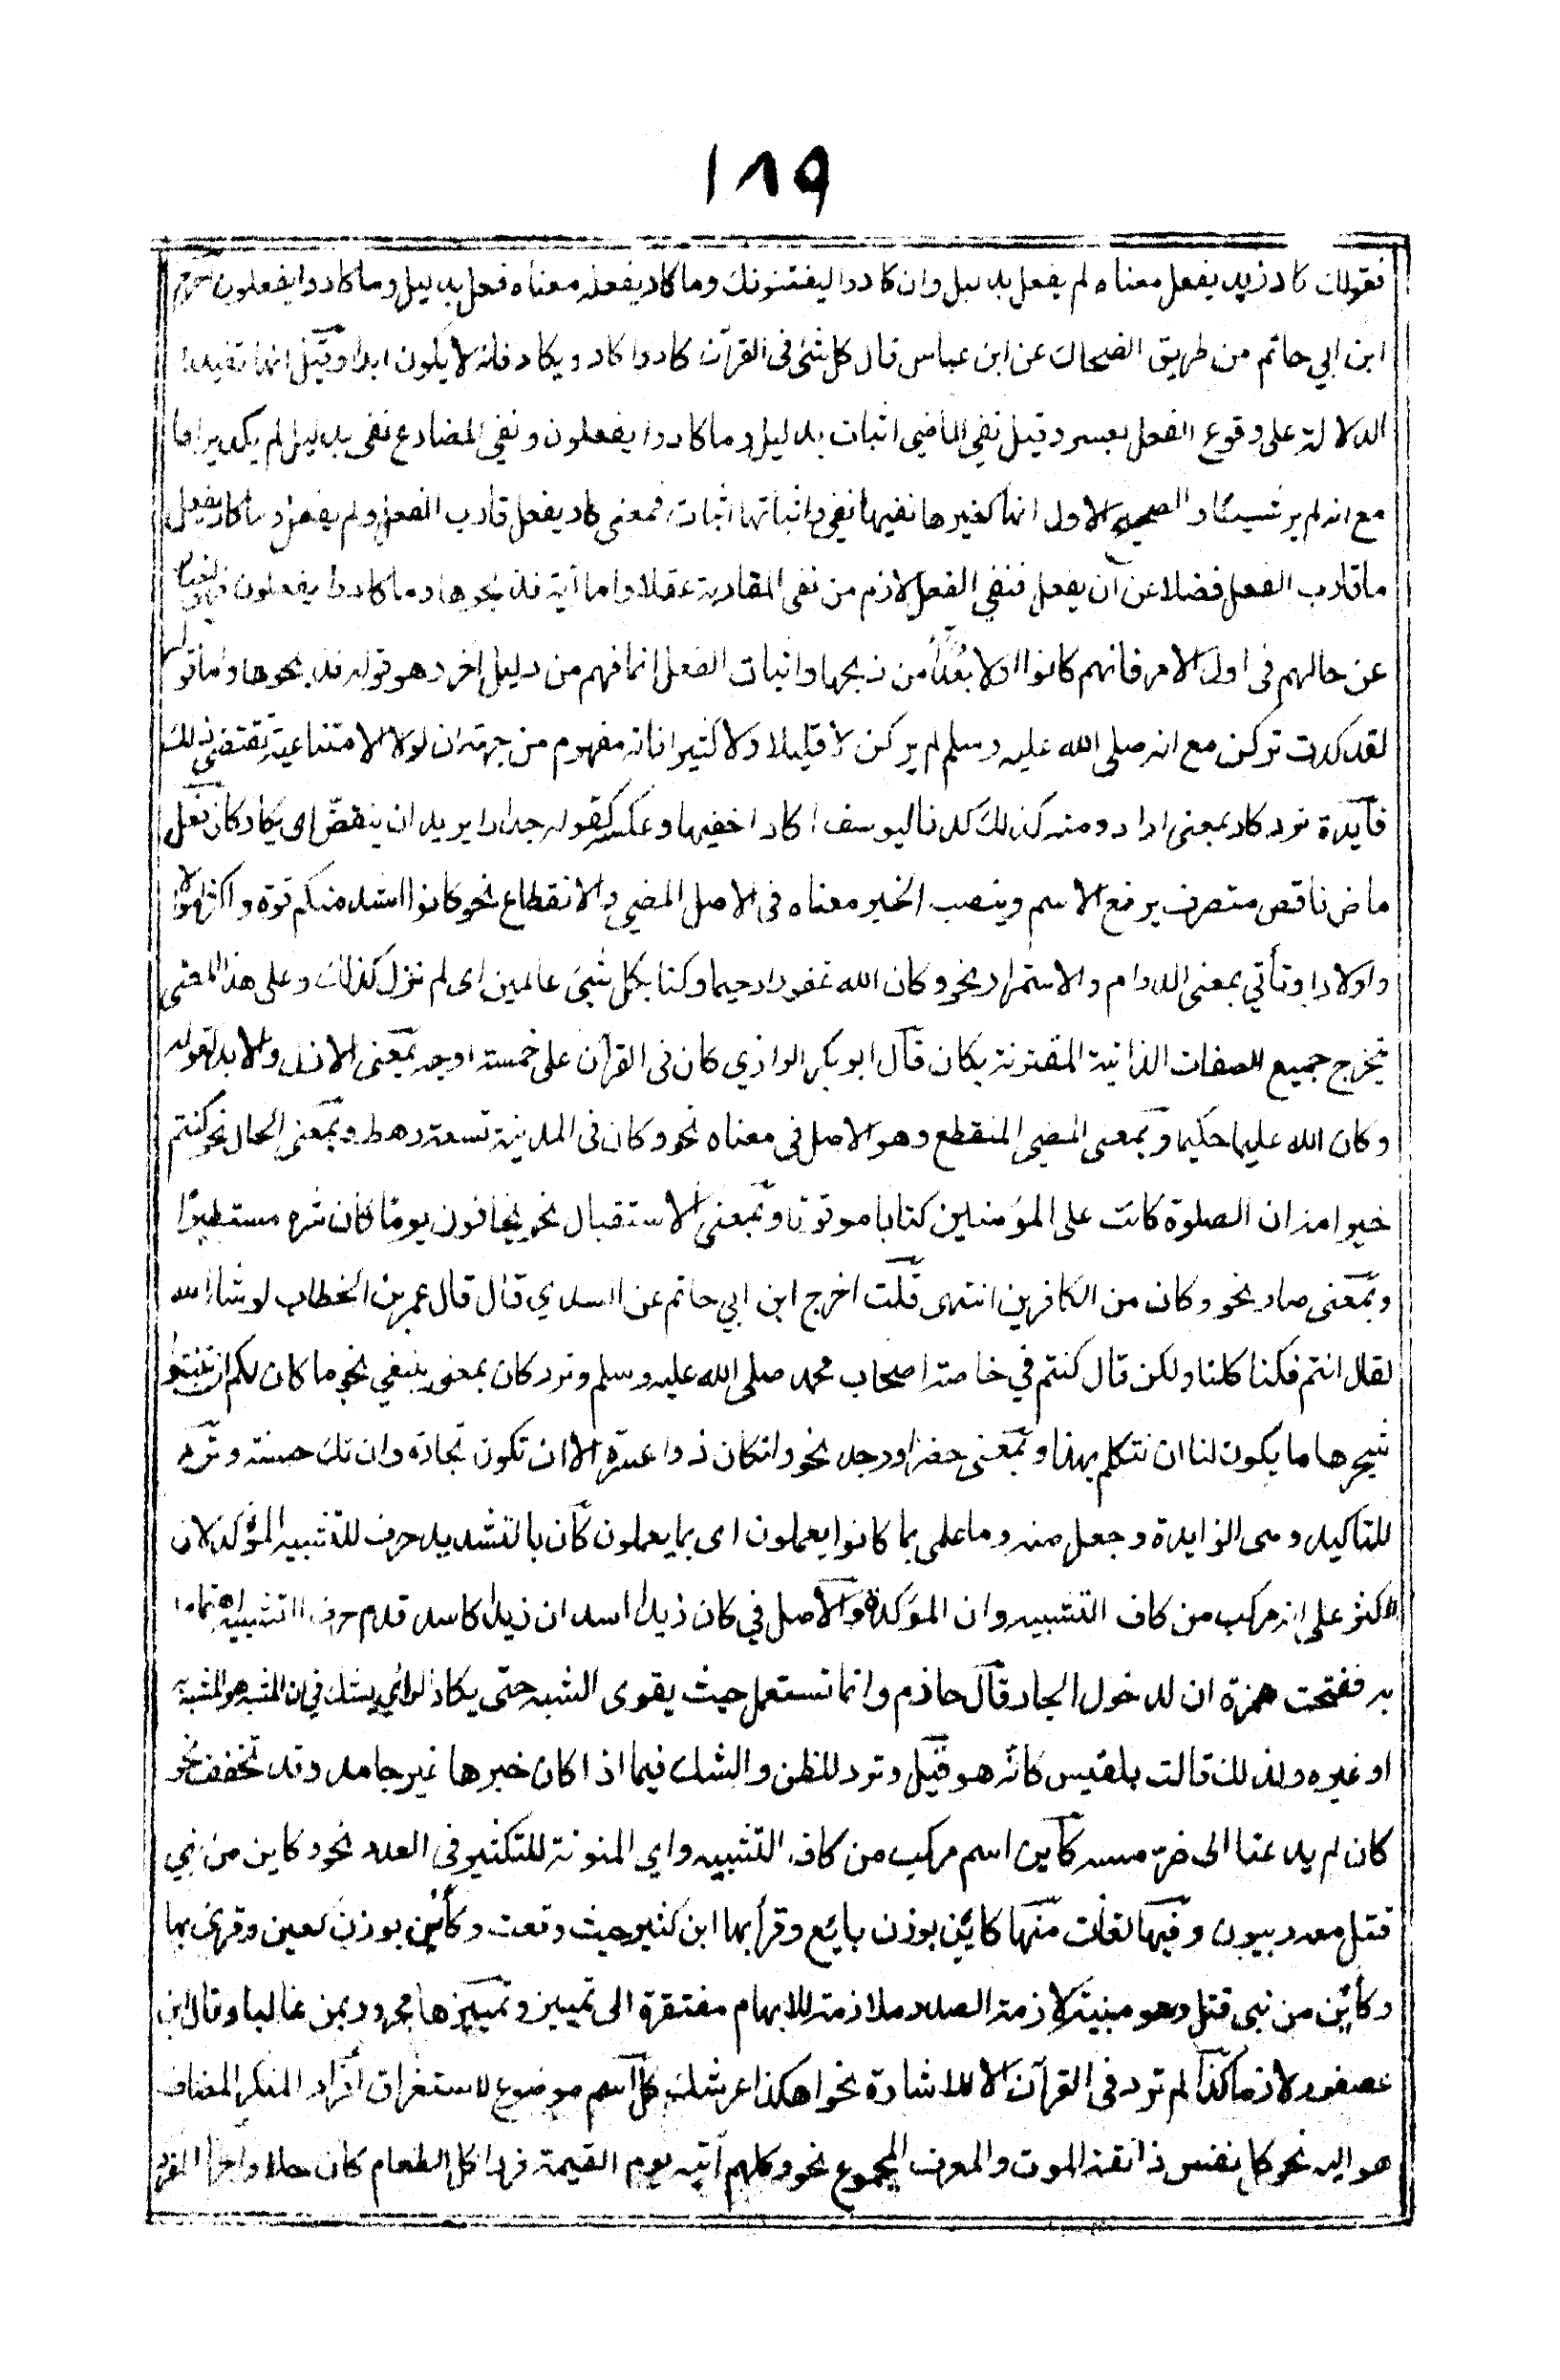 ١٨٩
فقولك كاد زيد يفعل معناه لم يفعل بدليل وان كادوا ليفتنونك وما كاد يفعل معناه فعل بدليل وما كادوا يفعلون اخرج
ابن ابي حاتم من طريق الضحاك عن ابن عباس قال كل شئ فى القرآن كادوا كاد ويكاد فانه لا يكون ابدا وقيل انها تفيد
الدلالة على وقوع الفعل بعسر وقيل نفي الماضى اثبات بدليل وما كادوا يفعلون ونفي المضارع نفى بدليل لم يكد يراها
مع انه لم ير شيئا والصحيح الاول انها كغيرها نفيها نفي واثباتها اثبات فمعنى كاد يفعل قارب الفعل ولم يفعل وما كاد يفعل
ما قارب الفعل فضلا عن ان يفعل فنفي الفعل لازم من نفى المقاربة عقلا واما آية فذبحوها وما كادوا يفعلون فهو اخبار
عن حالهم فى اول الامر فانهم كانوا اولا بعداء من ذبحها واثبات الفعل انما فهم من دليل اخر وهو قوله فذبحوها واما قوله
لقد كدت تركن مع انه صلى الله عليه وسلم لم يركن لا قليلا ولا كثيرا فانه مفهوم من جهة ان لولا الامتناعية تقتضي ذلك
فآئدة ترد كاد بمعنى اراد ومنه كذلك كدنا ليوسف اكاد اخفيها وعكسه كقوله جدارا يريد ان ينقضّ اى يكاد كان فعل
ماض ناقص متصرف يرفع الاسم وينصب الخبر معناه فى الاصل المضي والانقطاع نحو كانوا اشد منكم قوة واكثر اموالا
واولادا وتأتي بمعنى الدوام والاستمرار نحو وكان الله غفورا رحيما وكنا بكل شئ عالمين اى لم نزل كذلك وعلى هذا المعنى
تخرج جميع الصفات الذاتية المقترنة بكان قال ابو بكر الرازي كان فى القرآن على خمسة اوجه بمعنى الازل والابد لقوله
وكان الله عليما حكيما وبمعنى المضي المنقطع وهو الاصل فى معناه نحو وكان فى المدينة تسعة رهط وبمعنى الحال نحو كنتم
خير امة ان الصلوة كانت على المؤمنين كتابا موقوتا وبمعنى الاستقبال نحو يخافون يوما كان شره مستطيرا
وبمعنى صار نحو وكان من الكافرين انتهى قلت اخرج ابن ابي حاتم عن السدي قال قال عمر بن الخطاب لو شاء الله
لقال انتم فكنا كلنا ولكن قال كنتم في خاصة اصحاب محمد صلى الله عليه وسلم وترد كان بمعنى ينبغي نحو ما كان لكم ان تنبتوا
شجرها ما يكون لنا ان نتكلم بهذا وبمعنى حضر او وجد نحو وان كان ذوا عسرة الا ان تكون تجارة وان تك حسنة وترد
للتاكيد وهى الزايدة وجعل منه وما علمى بما كانوا يعملون اى بما يعملون كأن بالتشديد حرف للتشبيه المؤكد لان
الاكثر على انه مركب من كاف التشبيه وان المؤكدة والاصل في كان زيدا اسد ان زيدا كاسد قدم حرف التشبيه اهتماما
به ففتحت همزة ان لدخول الجار قال حازم وانما تستعمل حيث يقوى الشبه حتى يكاد الرائي يشك في ان المشبه هو المشبه به
او غيره ولذلك قالت بلقيس كانه هو قيل وترد للظن والشك فيما اذا كان خبرها غير جامد وقد تخفف نحو
كان لم يدعنا الى ضر مسه كأين اسم مركب من كاف التشبيه واي المنونة للتكثير فى العدد نحو وكاين من نبي
قتل معه ربيون وفيها لغات منها كائين بوزن بايع وقرأ بها ابن كثير حيث وقعت وكأئن بوزن كعين وقرئ بها
وكأين من نبى قتل وهو مبنية لازمة الصدر ملازمة للابهام مفتقرة الى تمييز وتمييزها مجرور بمن غالبا وقال ابن
عصفور لازما كذا لم ترد فى القرآن الا للاشارة نحو اهكذا عرشك كل اسم موضوع لاستغراق أفراد المنكر المضاف
هو اليه نحو كل نفس ذائقة الموت والمعرف المجموع نحو وكلهم آتيه يوم القيمة فردا كل الطعام كان حلا واجزا المفرد